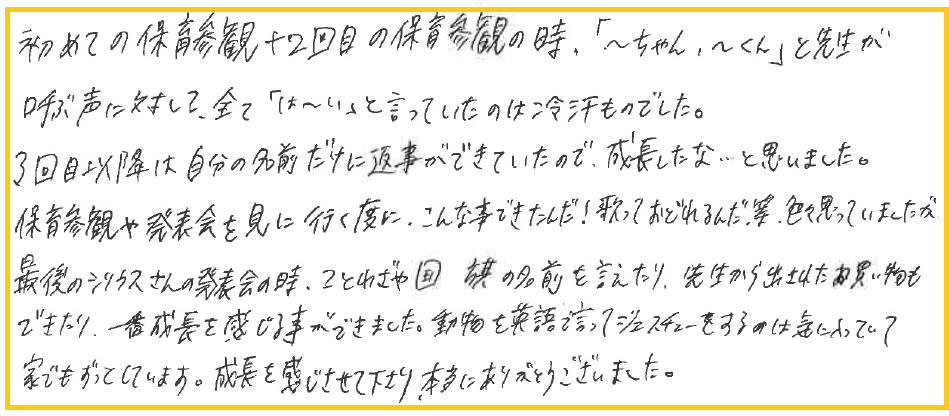 初めての保育参観+2回目の保育参観の時、「〜ちゃん、〜くん」と先生が
呼ぶ声に対して、全て「は〜い」と言っていたのは冷汗ものでした。
3回目以降は自分の名前だけに返事ができていたので、成長したな…と思いました。
保育参観や発表会を見に行く度に、こんな事できたんだ!歌っておどれるんだ!等、色々思っていましたが、
最後のシリウスさんの発表会の時、ことわざや国旗の名前を言えたり、先生から出されたお買い物も
できたり、一番成長を感じる事ができました。動物を英語で言ってジェスチャーをするのは気に入っていて
家でもずっとしています。成長を感じさせて下さり、本当にありがとうございました。